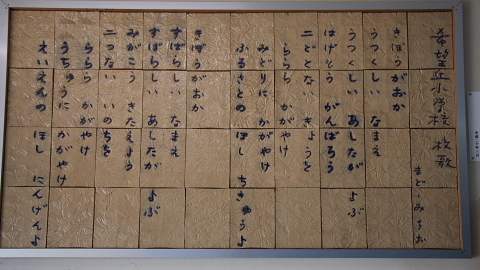 希望丘小学校 校歌
まど・みちお
きぼうがおか
うつくしい なまえ
うつくしい あしたが よぶ
はげもう がんばろう
二どとない きょうを
ららら かがやけ
みどりに かがやけ
ふるさとの ほし ちきゅうよ
きぼうがおか
すばらしい なまえ
すばらしい あしたが よぶ
みがこう きたえよう
二つない いのちを
ららら かがやけ
うちゅうに かがやけ
えいえんの ほし にんげんよ